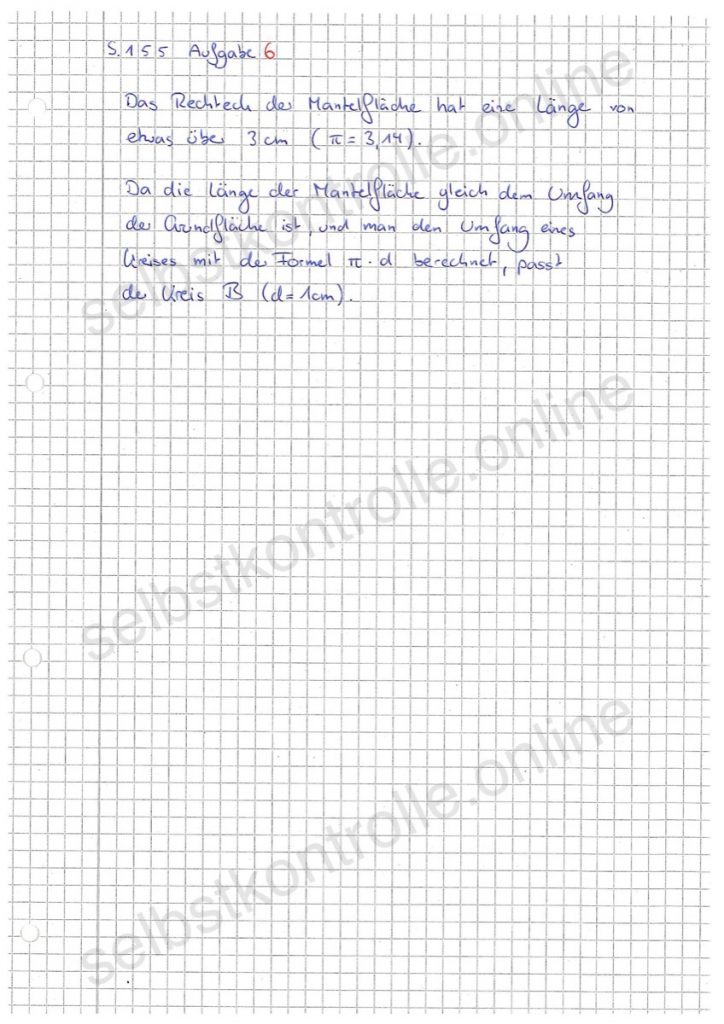 S. 155 Aufgabe 6
Das Rechteck der Mantelfläche hat eine Länge von
etwas über 3 cm (π = 3,14).
Da die Länge der Mantelfläche gleich dem Umfang
der Grundfläche ist, und man den Umfang eines
Kreises mit der Formel π · d berechnet, passt
der Kreis B (d = 1cm).
selbstkontrolle.online
selbstkontrolle.online
selbstkontrolle.online